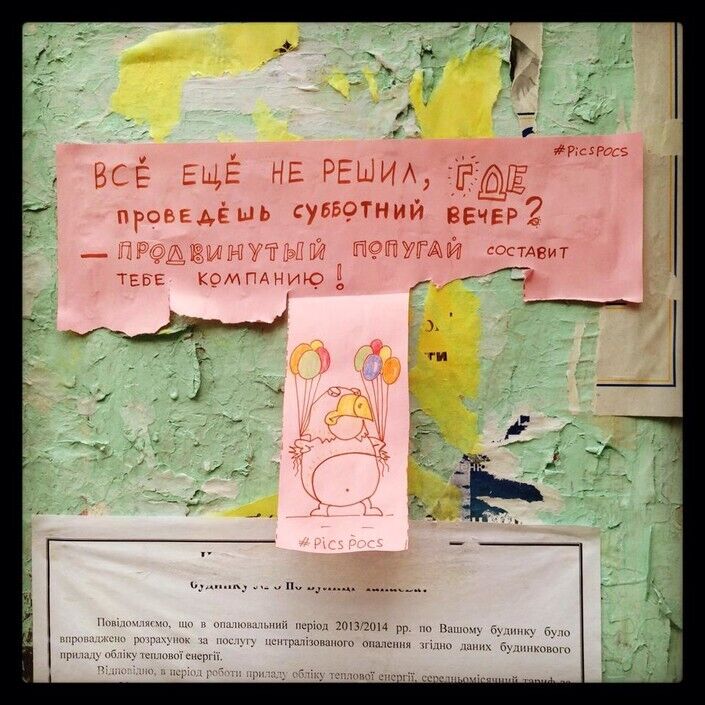 #PicsPocs
ВСЁ ЕЩЁ НЕ РЕШИЛ, ГДЕ
ПРОВЕДЁШЬ СУББОТНИЙ ВЕЧЕР?
— ПРОДВИНУТЫЙ ПОПУГАЙ СОСТАВИТ
ТЕБЕ КОМПАНИЮ!
ти
#PicsPocs
Повідомляємо, що в опалювальний період 2013/2014 рр. по Вашому будинку було
впроваджено розрахунок за послугу централізованого опалення згідно даних будинкового
приладу обліку теплової енергії.
Відповідно, в період роботи приладу обліку теплової енергії, середньомісячний тариф за